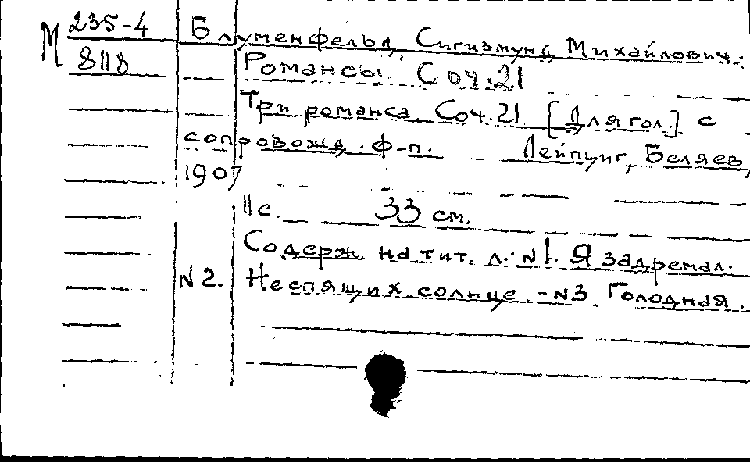 М 235-4
818
Блуменфельд, Сигизмунд Михайлович.
Романсы. Соч. 21
Три романса. Соч. 21 [Для гол.] с
сопровожд. ф-п. Лейпциг, Беляев,
1907
11 с. 33 см.
Содерж. на тит. л.: №1. Я задремал.
№2. Неспящих солнце. - №3 Голодная.